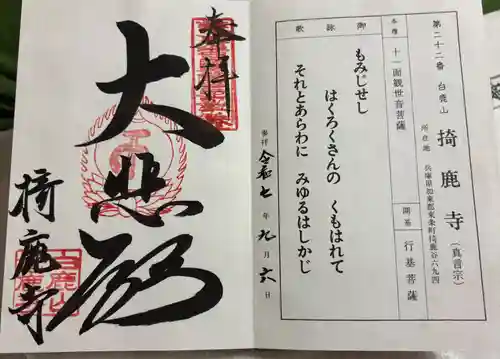 第二十二番 白鹿山
掎鹿寺(真言宗)
所在地 兵庫県加東郡東条町掎鹿谷六九四
本尊 十一面観世音菩薩
開基 行基菩薩
御詠歌
もみじせし
はくろくさんの くもはれて
それとあらわに みゆるはしかじ
参拝 令和七年九月六日
奉拝
大悲殿
掎鹿寺